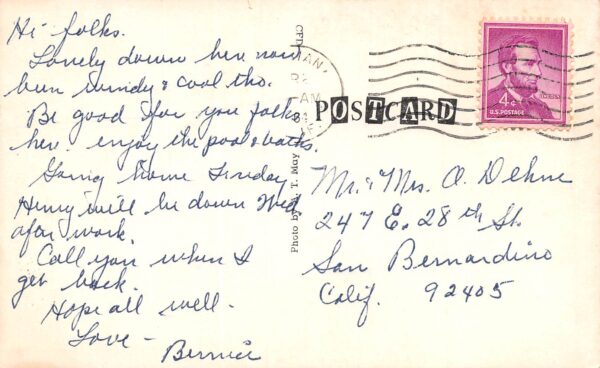 Hi folks.
Lovely down here now
been windy & cool tho.
Be good for you folks
here. enjoy the pool & baths.
Going home Sunday
Henry will be down Wed
after work.
Call you when I
get back.
Hope all well.
Love -
Bernice
POSTCARD
Photo by T. May
AM
4¢
U.S. POSTAGE
Mr. & Mrs. O. Dehne
247 E. 28th St.
San Bernardino
Calif. 92405